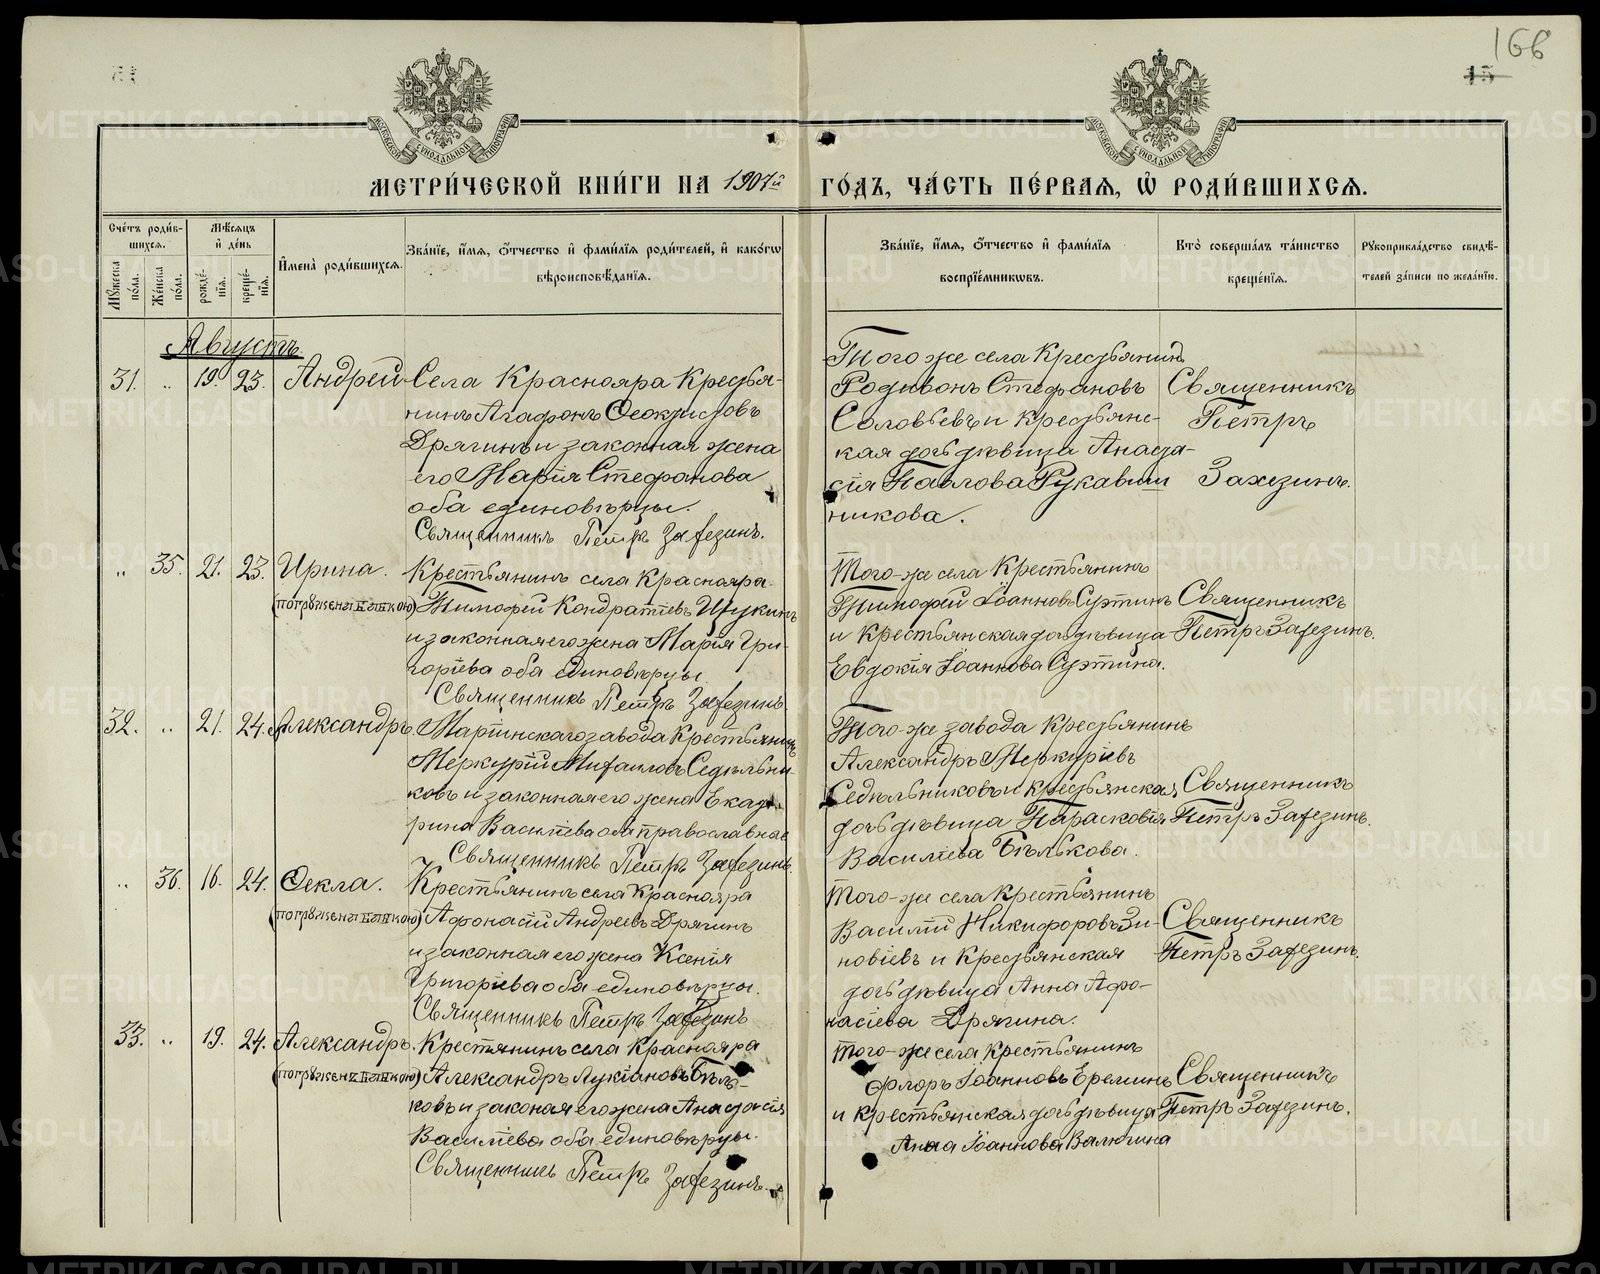 166
15
МЕТРИ́ЧЕСКОЙ КНИ́ГИ НА 1907й ГО́ДЪ, ЧА́СТЬ ПЕ́РВАЯ, Ѽ РОДИ́ВШИХСЯ.
Сче́тъ роди́в-
шихся.
Мꙋжеска по́ла.
Же́нска по́ла.
Мѣ́сяцъ
и҆ де́нь
рожде́-
нїѧ.
креще́-
нїѧ.
И҆мена̀ роди́вшихсѧ.
Зва́нїе, и҆́мѧ, ѻ҆́тчество и҆ фами́лїѧ роди́телей, и҆ како́гѡ
вѣроисповѣ́данїѧ.
Зва́нїе, и҆́мѧ, ѻ҆́тчество и҆ фами́лїѧ
воспрїе́мникѡвъ.
Кто̀ соверша́лъ та́инство
креще́нїѧ.
Рꙋкоприкла́дство свидѣ́-
телей за́писи по жела́нїю.
Августъ
31. „ 19. 23. Андрей
Села Краснояра Крестья-
нинъ Агафонъ Ѳеоктистовъ
Дрягинъ и законная жена
его Марія Стефанова
оба единовѣрцы.
Священникъ Петръ Захезинъ.
Того же села Крестьянинъ
Родивонъ Стефановъ
Соловьевъ и крестьянс-
кая дочь дѣвица Анаста-
сія Павлова Рукавиш
никова.
Священникъ
Петръ
Захезинъ.
„ 35. 21. 23. Ирина.
(погружены банкою)
Крестьянинъ села Краснояра
Тимофей Кондратіевъ Щукинъ
и законная его жена Марія Гри-
горіева оба единовѣрцы.
Священникъ Петръ Захезинъ.
Того-же села Крестьянинъ
Тимофей Іоанновъ Суятинъ
и Крестьянская дочь дѣвица
Евдокія Іоаннова Суятина.
Священникъ
Петръ Захезинъ.
32. „ 21. 24. Александръ
Маріинскаго завода Крестьянинъ
Меркурій Михаиловъ Седѣльни-
ковъ и законная его жена Екате-
рина Василіева оба православные
Священникъ Петръ Захезинъ.
Того-же завода Крестьянинъ
Александръ Меркуріевъ
Седѣльниковъ и крестьянская
дочь дѣвица Параскովія
Василіева Бѣлькова.
Священникъ
Петръ Захезинъ.
„ 36. 16. 24. Ѳекла.
(погружены банкою)
Крестьянинъ села Краснояра
Афонасій Андреевъ Дрягинъ
и законная его жена Ксенія
Григоріева оба единовѣрцы.
Священникъ Петръ Захезинъ
Того-же села Крестьянинъ
Василій Никифоровъ Зи-
новіевъ и Крестьянская
дочь дѣвица Анна Афо-
насіева Дрягина.
Священникъ
Петръ Захезинъ.
33. „ 19. 24. Александръ.
(погружены банкою)
Крестянинъ села Краснояра
Александръ Лукіановъ Бѣль-
ковъ и законая его жена Анастасія
Василіева оба единовѣрцы.
Священникъ Петръ Захезинъ.
Того-же села Крестьянинъ
Флоръ Іоанновъ Ереминъ
и Крестьянская дочь дѣвица
Анна Іоаннова Валюгина
Священникъ
Петръ Захезинъ.